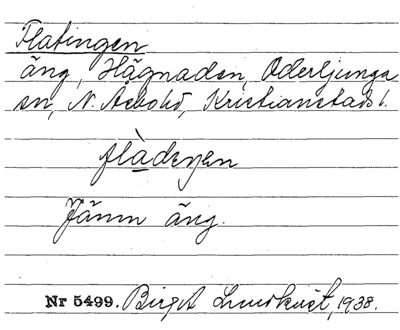 Flatingen
äng, Hägnaden, Oderljunga
sn, N. Åsbohd, Kristianstads l.
flàdeŋen
Jämn äng.
Nr 5499. Birgit Lundkvist, 1938.